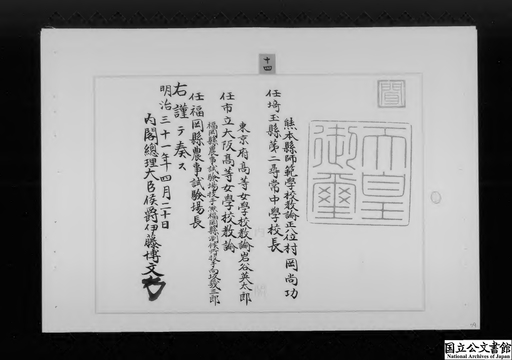 十四
天皇御璽
熊本縣師範學校教諭正八位村岡尚功
任埼玉縣第二尋常中學校長
東京府高等女學校教諭岩谷英太郎
任市立大阪高等女學校教諭
福岡縣農事試験場技手兼福岡縣
任福岡縣農事試験場長
右謹テ奏ス
明治三十一年四月二十日
内閣總理大臣侯爵伊藤博文
国立公文書館
National Archives of Japan